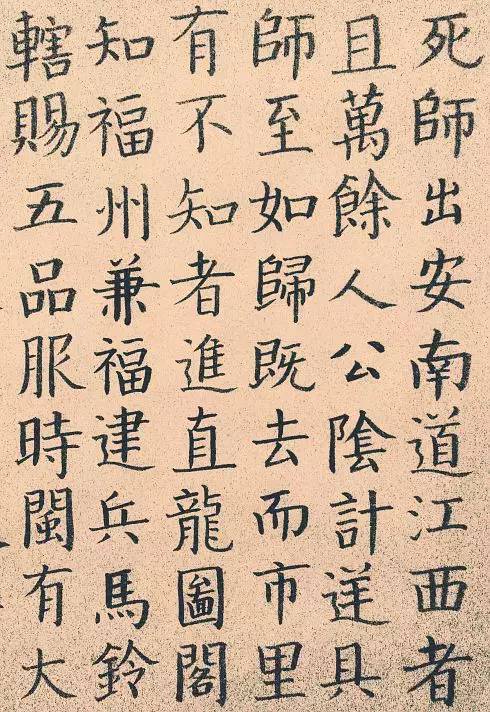 死師出安南道江西者
且萬餘人公陰計逆具
師至如歸既去而市里
有不知者進直龍圖閣
知福州兼福建兵馬鈐
轄賜五品服時閩有大